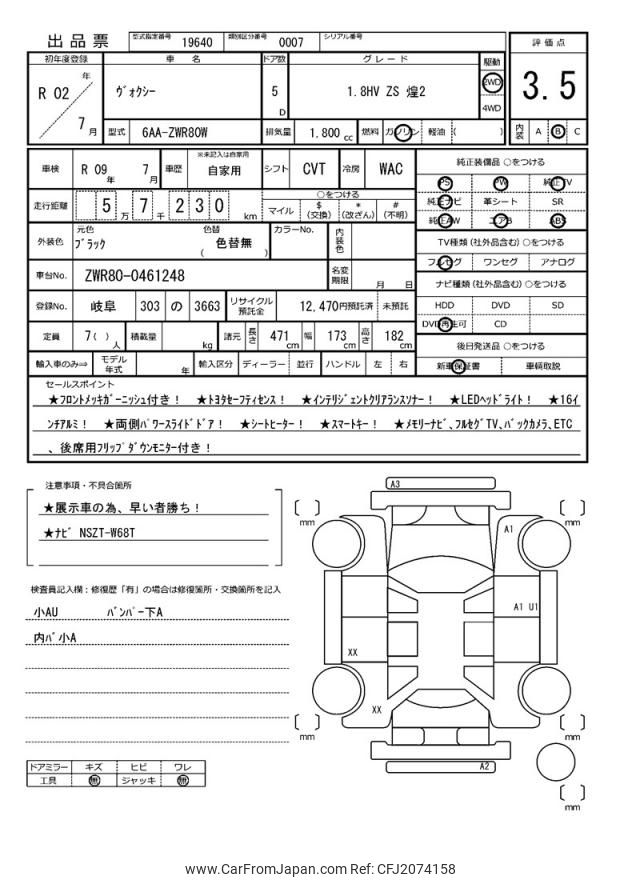 出品票 型式指定番号 19640 類別区分番号 0007 シリアル番号
評価点
3.5
内装 A B C
初年度登録 車名 ドア数 グレード 駆動
R 02 年 7 月 ヴォクシー 5 D 1.8HV ZS 煌2 2WD 4WD
型式 6AA-ZWR80W 排気量 1,800 cc 燃料 ガソリン 軽油 ( )
車検 R 09 年 7 月 車歴 ※未記入は自家用 自家用 シフト CVT 冷房 WAC
走行距離 5 万 7 千 2 3 0 km ○をつける マイル $(交換) *(改ざん) #(不明)
外装色 元色 ブラック 色替 色替無 ( ) カラーNo. 内装色
車台No. ZWR80-0461248 名変期限 月 日
登録No. 岐阜 303 の 3663 リサイクル預託金 12,470円預託済 未預託
定員 7( )人 積載量 kg 諸元 長さ 471 cm 幅 173 cm 高さ 182 cm
輸入車のみ⇨ モデル年式 年 輸入区分 ディーラー 並行 ハンドル 左 右
純正装備品 ○をつける
PS PW 純正TV
純正ナビ 革シート SR
純正AW エアB ABS
TV種類(社外品含む) ○をつける
フルセグ ワンセグ アナログ
ナビ種類(社外品含む) ○をつける
HDD DVD SD
DVD再生可 CD
後日発送品 ○をつける
新車保証書 車輌取説
セールスポイント
★フロントメッキガーニッシュ付き! ★トヨタセーフティセンス! ★インテリジェントクリアランスソナー! ★LEDヘッドライト! ★16イ
ンチアルミ! ★両側パワースライドドア! ★シートヒーター! ★スマートキー! ★メモリーナビ、フルセグTV、バックカメラ、ETC
、後席用フリップダウンモニター付き!
注意事項・不具合箇所
★展示車の為、早い者勝ち!
★ナビ NSZT-W68T
検査員記入欄:修復歴「有」の場合は修復箇所・交換箇所を記入
小AU バンパー下A
内バ小A
ドアミラー キズ ヒビ ワレ
工具 無 ジャッキ 無
A3
mm
mm
A1
A1 U1
XX
XX
mm
mm
A2
mm
www.CarFromJapan.com Ref: CFJ2074158